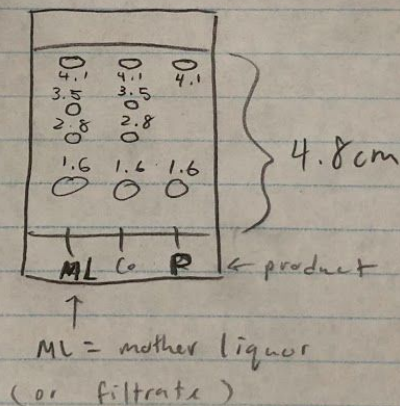 4.1 4.1 4.1
3.5 3.5
2.8 2.8
1.6 1.6 1.6
4.8 cm
ML Co P ← product
↑
ML = mother liquor
(or filtrate)